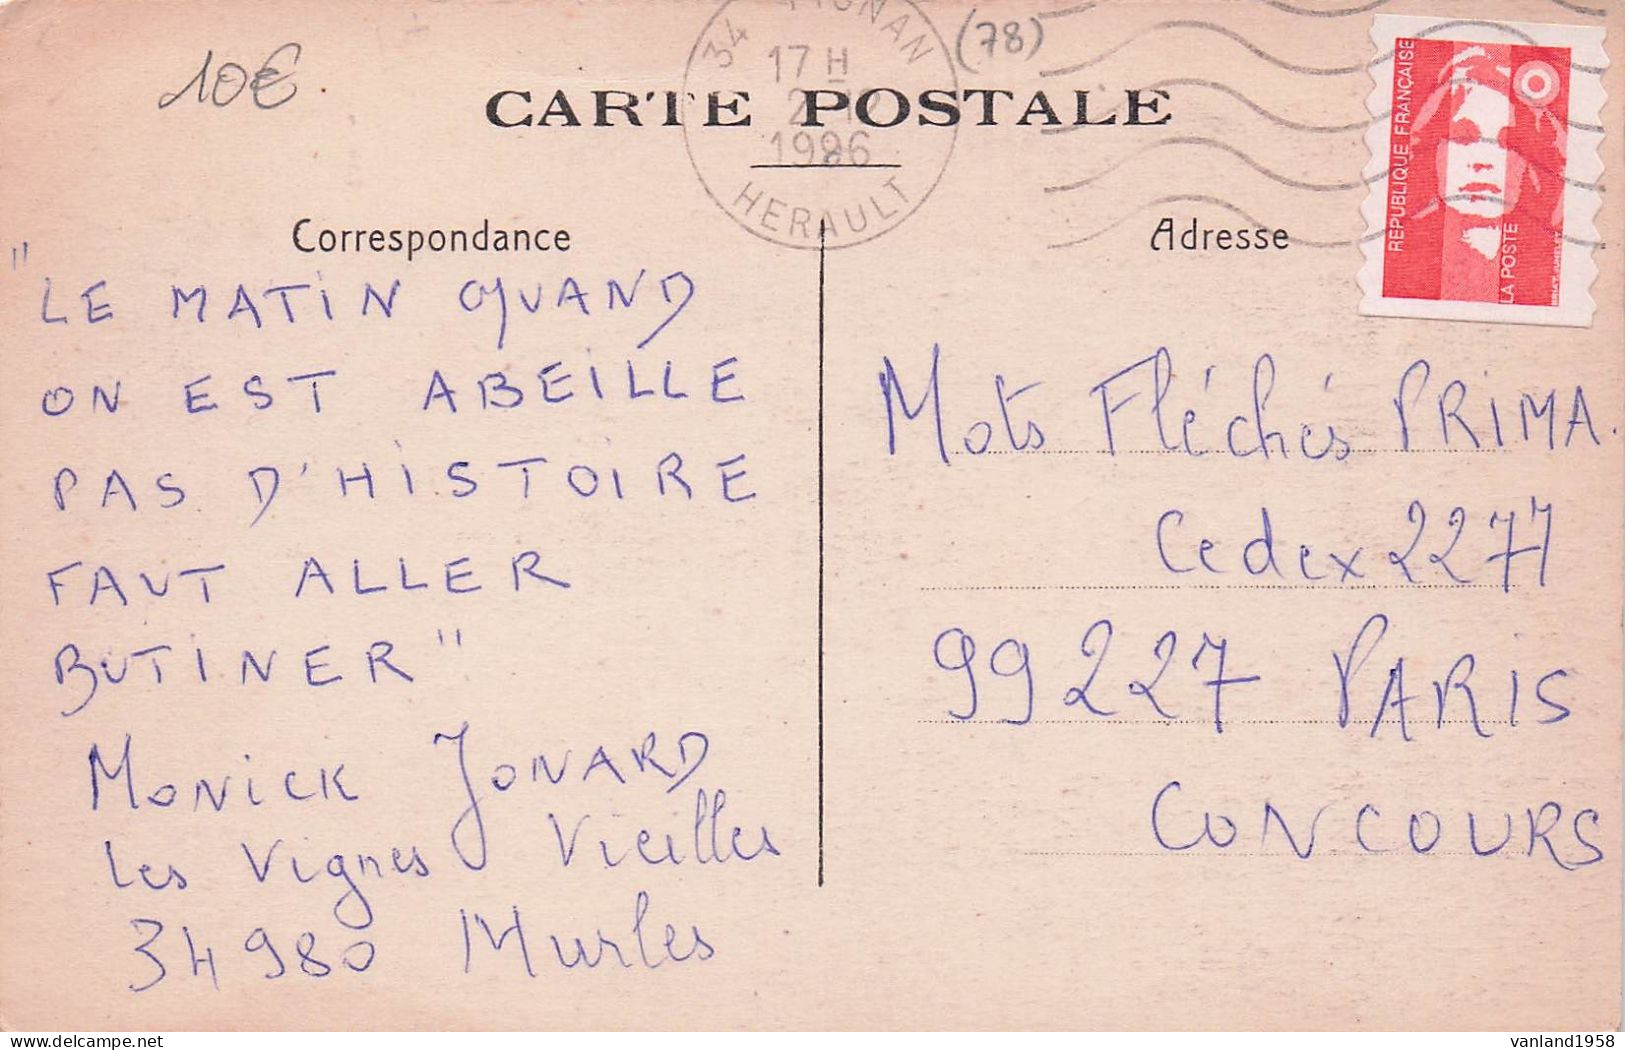 10€
(78)
34 PIGNAN
17 H
1996
HERAULT
CARTE POSTALE
REPUBLIQUE FRANÇAISE
LA POSTE
Correspondance
Adresse
"LE MATIN QUAND
ON EST ABEILLE
PAS D'HISTOIRE
FAUT ALLER
BUTINER"
MONICK JONARD
Les Vignes Vieilles
34980 Murles
Mots Fléchés PRIMA.
Cedex 2277
99227 PARIS
CONCOURS
delcampe.net
vanland1958